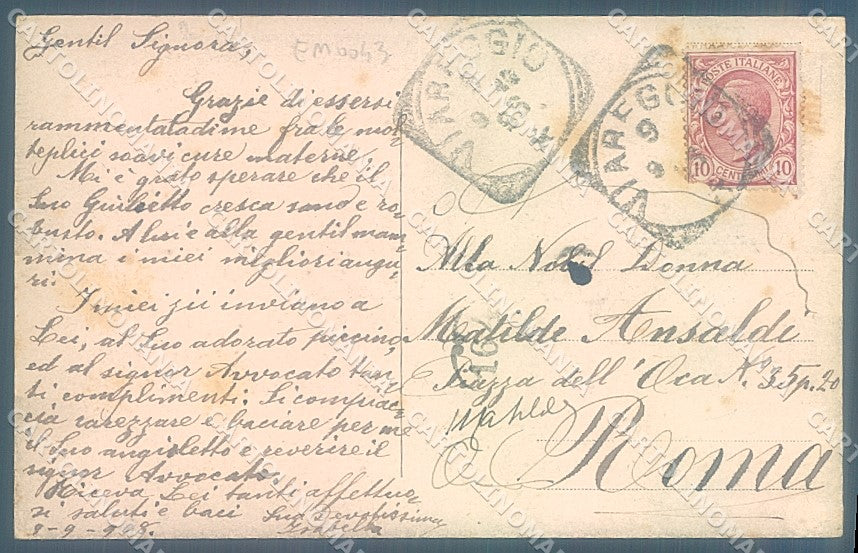 Gentil Signora,
EM0043
Grazie di essersi
rammentata di me fra le mol-
teplici soavi cure materne.
Mi è grato sperare che il
Suo Giulietto cresca sano e ro-
busto. A lui e alla gentil mam-
mina i miei migliori augu-
ri.
I miei zii inviano a
Lei, al Suo adorato piccino,
ed al signor Avvocato tan-
ti complimenti. Si compiac-
cia carezzare e baciare per me
il Suo angioletto e reverire il
signor Avvocato.
Riceva Lei tanti affettuo-
si saluti e baci Sua Devotissima
Isabella
9-9-908.
VIAREGGIO
VIAREGGIO
9
POSTE ITALIANE
10 CENTESIMI 10
Alla Nobil Donna
Matilde Ansaldi
Piazza dell'Oca N. 35 p. 20
Roma
164
CARTOLINOMANIA